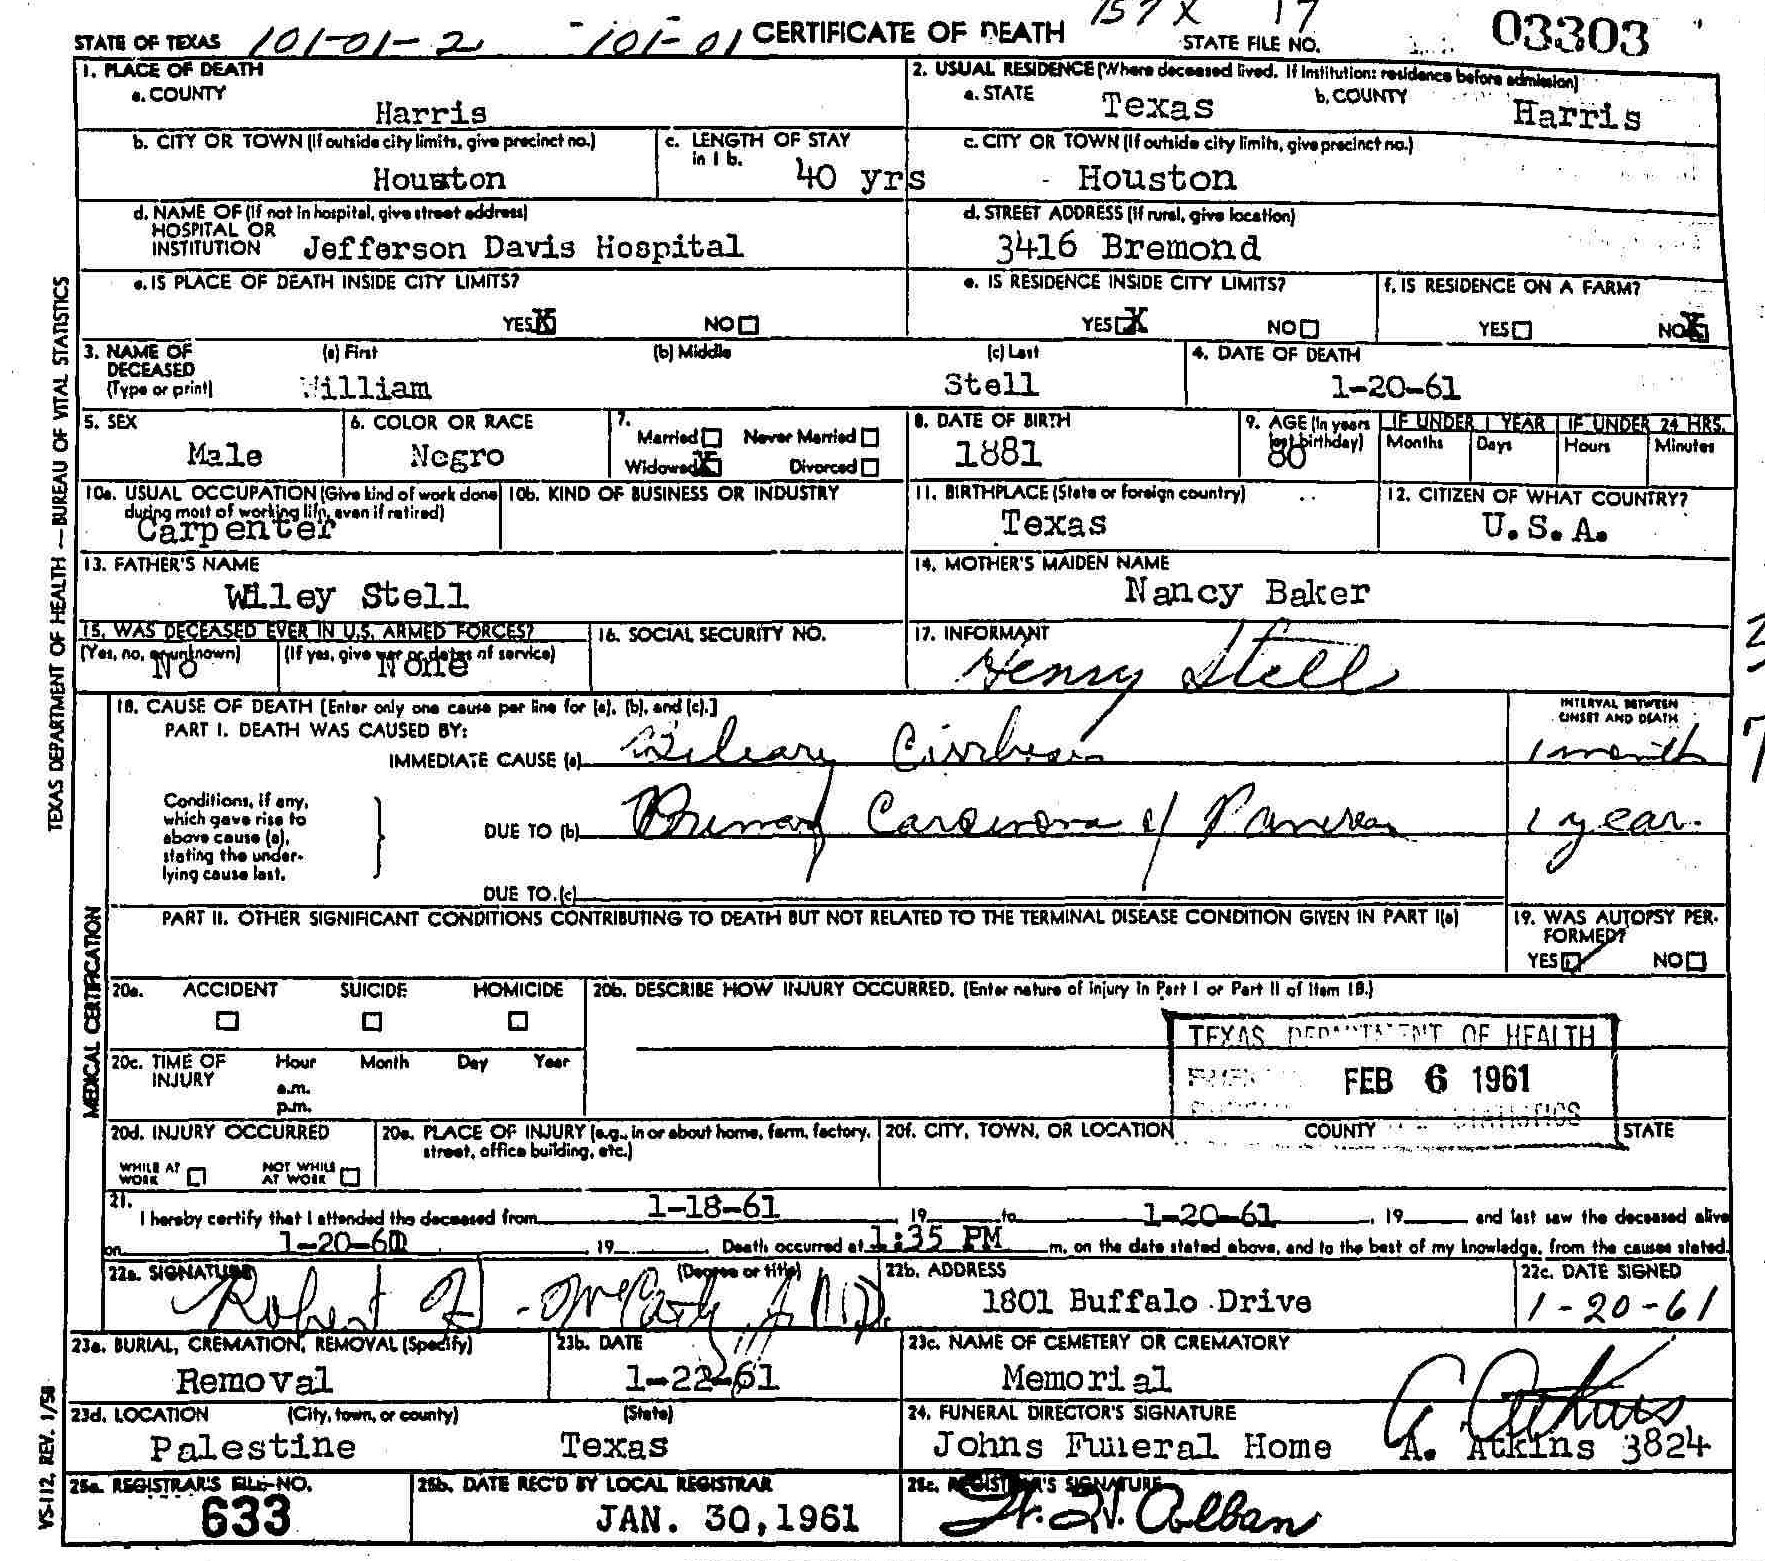 STATE OF TEXAS 101-01-2 101-01 CERTIFICATE OF DEATH 157X 17 STATE FILE NO. 03303
1. PLACE OF DEATH
a. COUNTY
Harris
2. USUAL RESIDENCE (Where deceased lived. If institution: residence before admission)
a. STATE Texas b. COUNTY Harris
b. CITY OR TOWN (If outside city limits, give precinct no.)
Houston
c. LENGTH OF STAY
in 1 b. 40 yrs
c. CITY OR TOWN (If outside city limits, give precinct no.)
Houston
d. NAME OF (If not in hospital, give street address)
HOSPITAL OR
INSTITUTION Jefferson Davis Hospital
d. STREET ADDRESS (If rural, give location)
3416 Bremond
e. IS PLACE OF DEATH INSIDE CITY LIMITS?
YES X NO
e. IS RESIDENCE INSIDE CITY LIMITS?
YES X NO
f. IS RESIDENCE ON A FARM?
YES NO X
3. NAME OF
DECEASED
(Type or print)
(a) First (b) Middle (c) Last
William Stell
4. DATE OF DEATH
1-20-61
5. SEX
Male
6. COLOR OR RACE
Negro
7.
Married Never Married
Widowed X Divorced
8. DATE OF BIRTH
1881
9. AGE (In years
last birthday)
80
IF UNDER 1 YEAR IF UNDER 24 HRS.
Months Days Hours Minutes
10a. USUAL OCCUPATION (Give kind of work done
during most of working life, even if retired)
Carpenter
10b. KIND OF BUSINESS OR INDUSTRY
11. BIRTHPLACE (State or foreign country)
Texas
12. CITIZEN OF WHAT COUNTRY?
U.S.A.
13. FATHER'S NAME
Wiley Stell
14. MOTHER'S MAIDEN NAME
Nancy Baker
15. WAS DECEASED EVER IN U.S. ARMED FORCES?
(Yes, no, or unknown) (If yes, give war or dates of service)
No None
16. SOCIAL SECURITY NO.
17. INFORMANT
Henry Stell
18. CAUSE OF DEATH [Enter only one cause per line for (a), (b), and (c).]
PART I. DEATH WAS CAUSED BY:
IMMEDIATE CAUSE (a) Biliary Cirrhosis
INTERVAL BETWEEN
ONSET AND DEATH
1 month
Conditions, if any,
which gave rise to
above cause (a),
stating the under-
lying cause last.
DUE TO (b) Primary Carcinoma of Pancreas
1 year.
DUE TO (c)
PART II. OTHER SIGNIFICANT CONDITIONS CONTRIBUTING TO DEATH BUT NOT RELATED TO THE TERMINAL DISEASE CONDITION GIVEN IN PART I(a)
19. WAS AUTOPSY PER-
FORMED?
YES NO
20a. ACCIDENT SUICIDE HOMICIDE
20b. DESCRIBE HOW INJURY OCCURRED. (Enter nature of injury in Part I or Part II of Item 18.)
20c. TIME OF
INJURY
Hour Month Day Year
a.m.
p.m.
TEXAS DEPARTMENT OF HEALTH
FEB 6 1961
STATISTICS
20d. INJURY OCCURRED
WHILE AT
WORK
NOT WHILE
AT WORK
20e. PLACE OF INJURY (e.g., in or about home, farm, factory,
street, office building, etc.)
20f. CITY, TOWN, OR LOCATION COUNTY STATE
21.
I hereby certify that I attended the deceased from 1-18-61, 19 to 1-20-61, 19 and last saw the deceased alive
on 1-20-61, 19 . Death occurred at 1:35 PM m. on the date stated above, and to the best of my knowledge, from the causes stated.
22a. SIGNATURE (Degree or title)
Robert McCarty M.D.
22b. ADDRESS
1801 Buffalo Drive
22c. DATE SIGNED
1-20-61
23a. BURIAL, CREMATION, REMOVAL (Specify)
Removal
23b. DATE
1-22-61
23c. NAME OF CEMETERY OR CREMATORY
Memorial
23d. LOCATION (City, town, or county) (State)
Palestine Texas
24. FUNERAL DIRECTOR'S SIGNATURE
A Atkins
Johns Funeral Home A. Atkins 3824
25a. REGISTRAR'S FILE NO.
633
25b. DATE REC'D BY LOCAL REGISTRAR
JAN. 30, 1961
25c. REGISTRAR'S SIGNATURE
Alban
TEXAS DEPARTMENT OF HEALTH — BUREAU OF VITAL STATISTICS
MEDICAL CERTIFICATION
VS-112, REV. 1/58